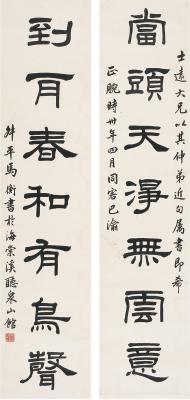 當頭天淨無雲意
士遠大兄以其仲弟近句屬書即希
正腕時卅年四月同客巴渝
到耳春和有鳥聲
叔平馬衡書於海棠溪聽泉山館